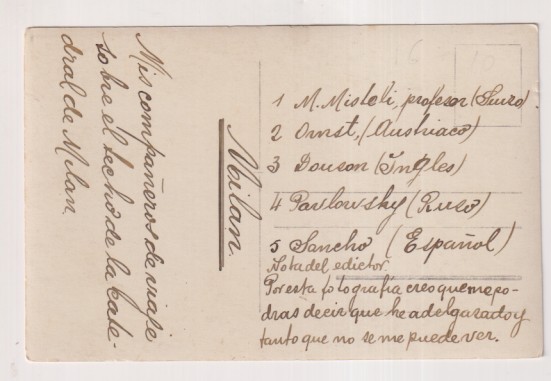 Mis compañeros de viaje
sobre el techo de la kate-
dral de Milan.
Milan.
1 M. Misteli, profesor (Suizo)
2 Ornst, (Austriaco)
3 Douson (Ingles)
4 Pavlowsky (Ruso)
5 Sancho (Español)
Nota del edictor.
Por esta fotografía creo que me po-
dras decir que he adelgazado y
tanto que no se me puede ver.